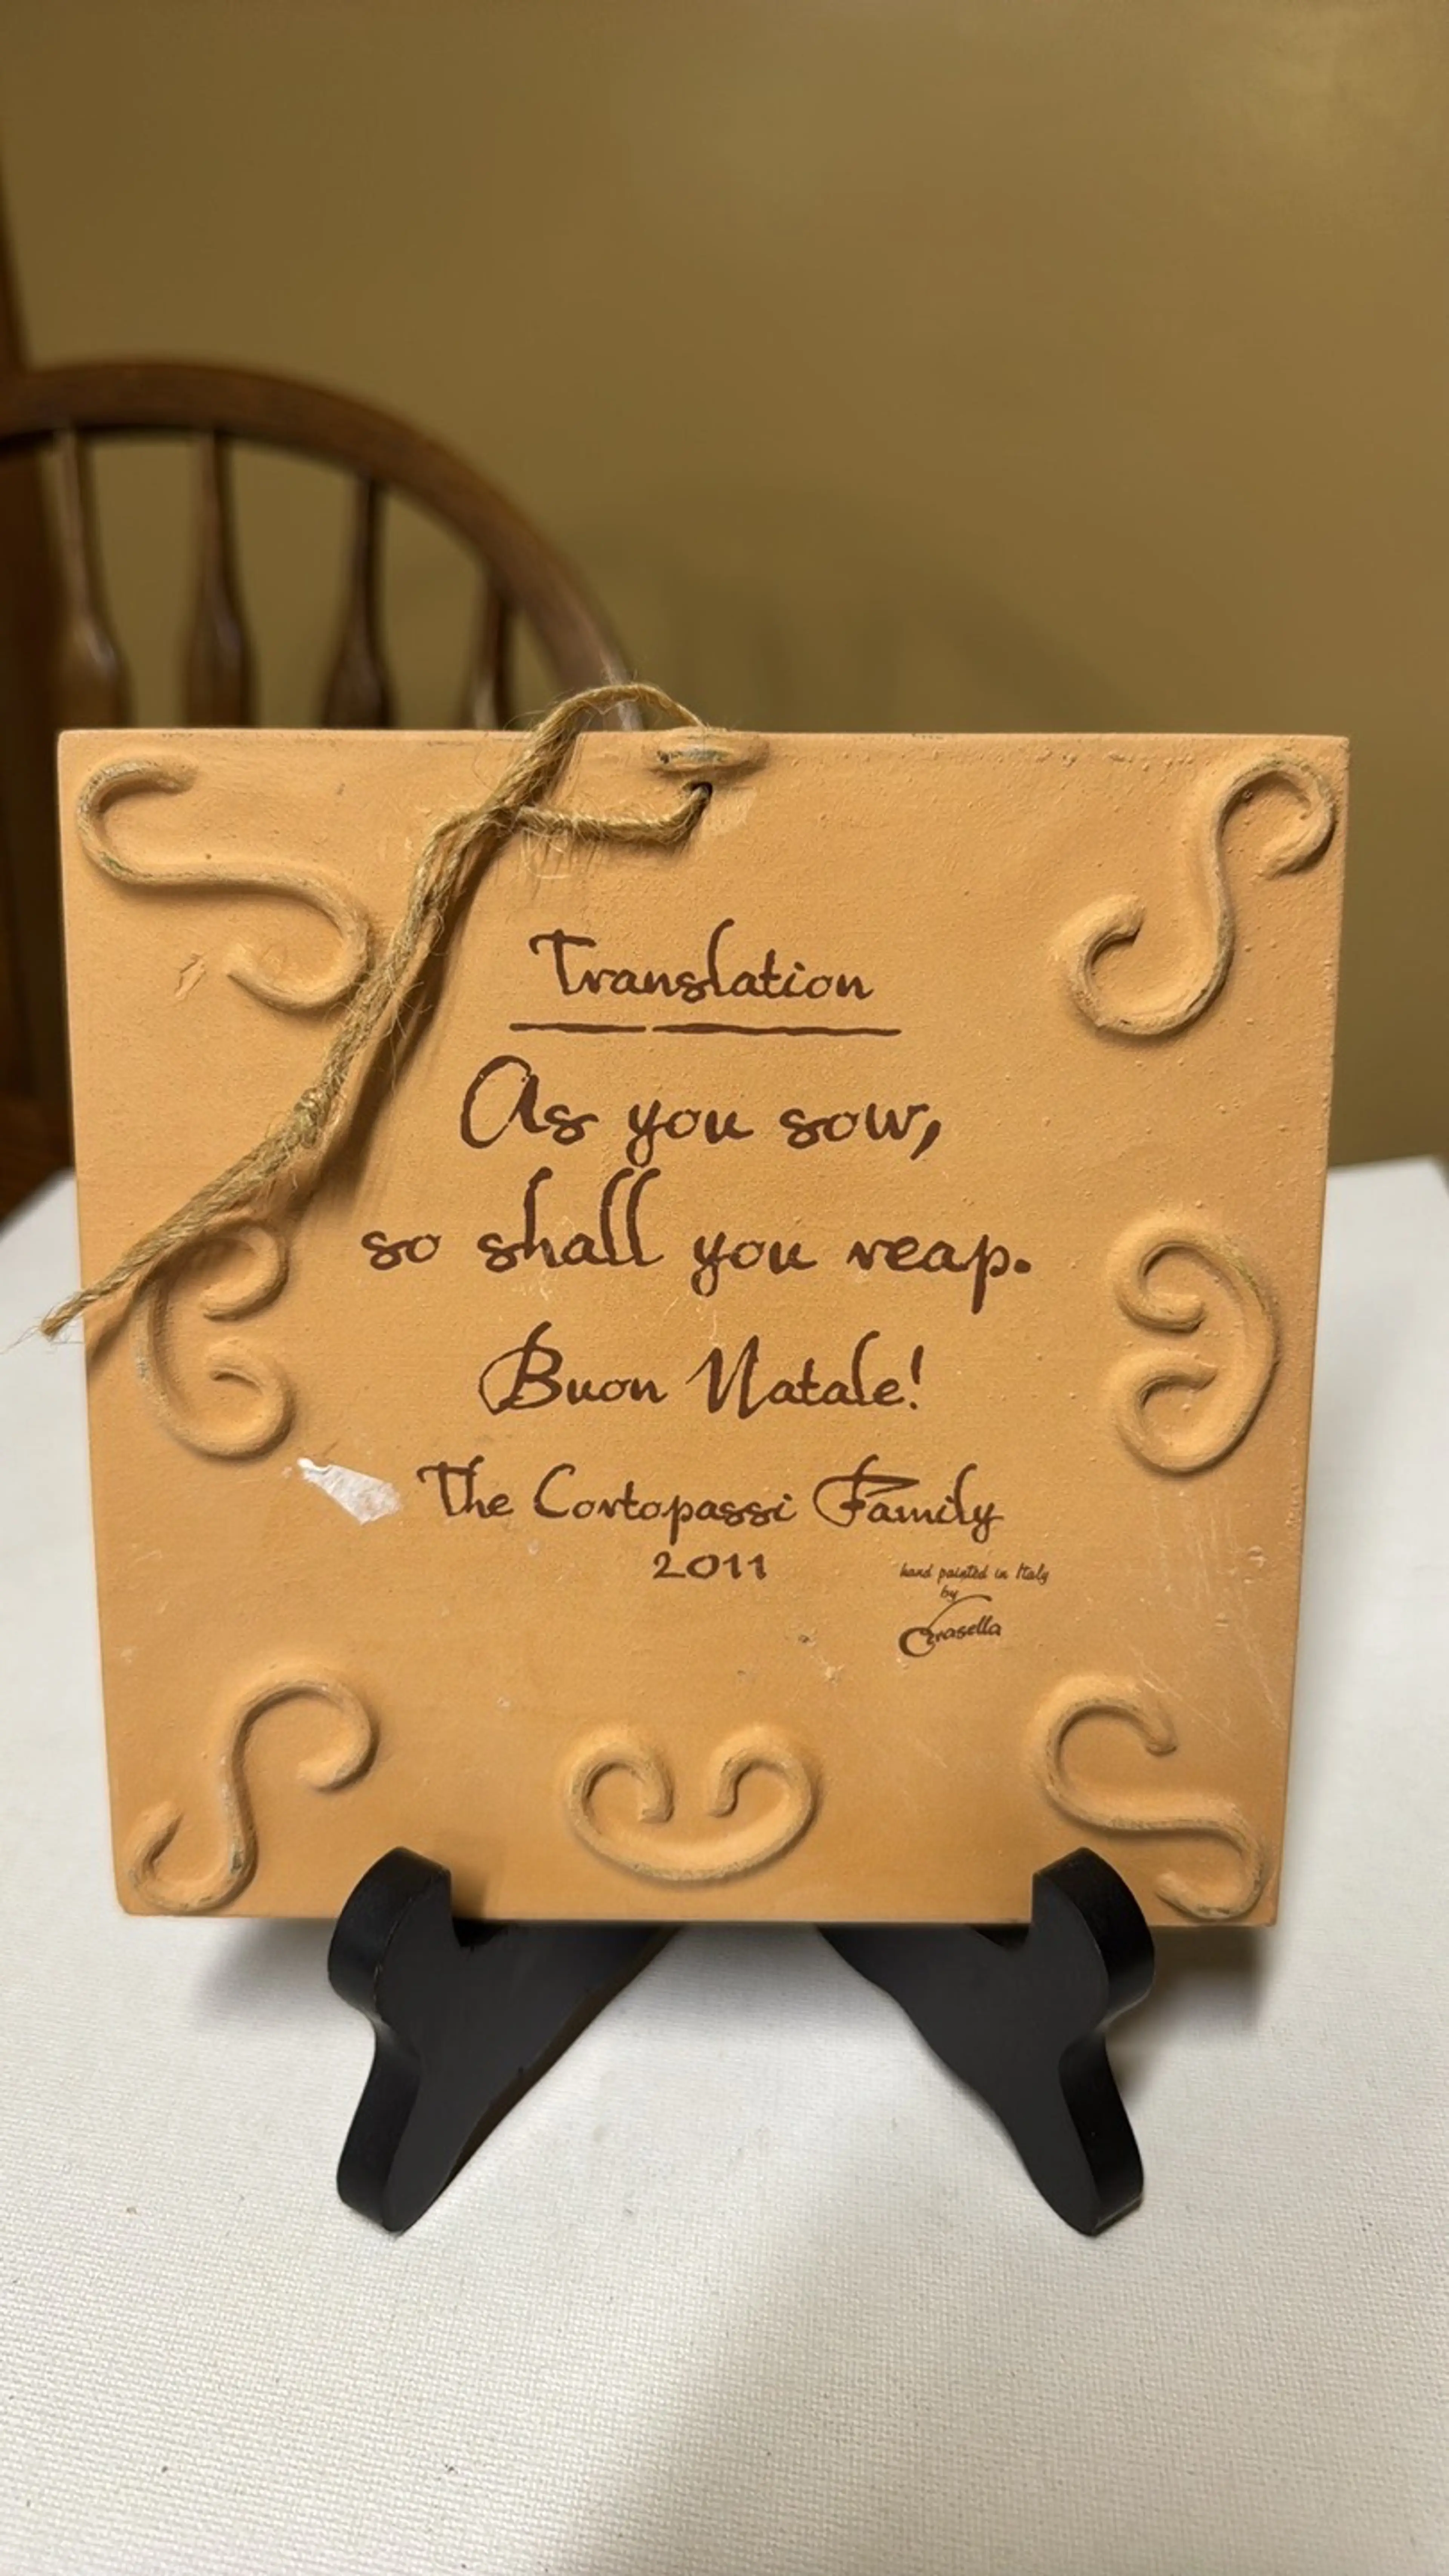 Translation
As you sow,
so shall you reap.
Buon Natale!
The Cortopassi Family
2011
hand painted in Italy
by
Crasella